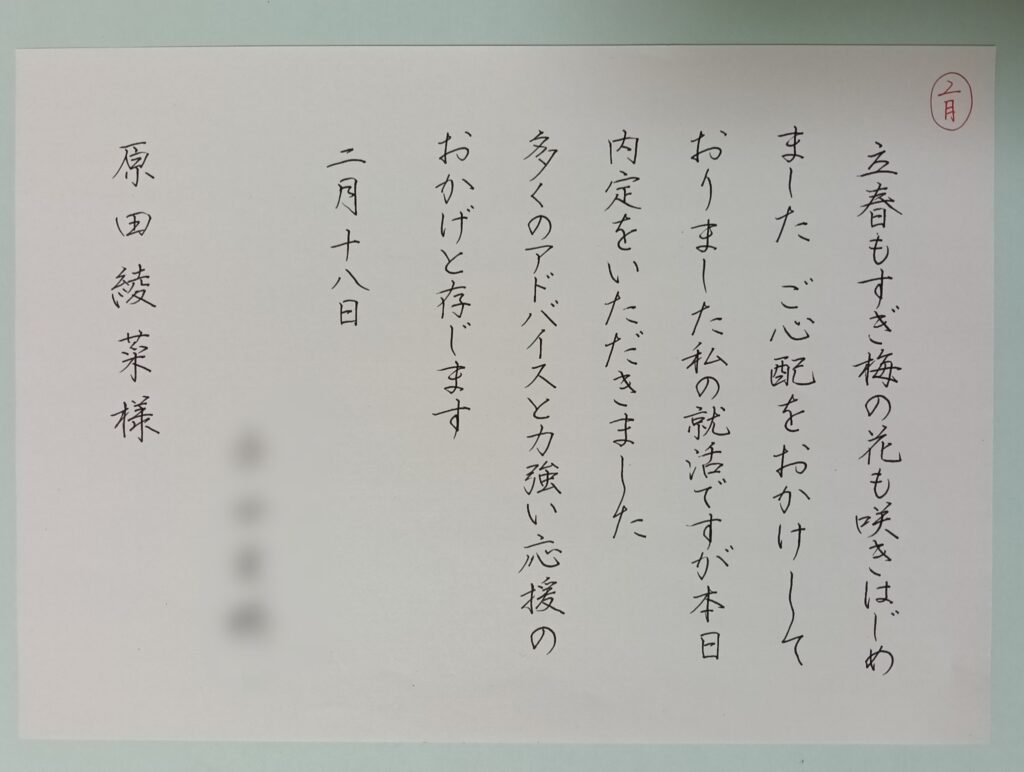 2月
立春もすぎ梅の花も咲きはじめ
ました ご心配をおかけして
おりました私の就活ですが本日
内定をいただきました
多くのアドバイスと力強い応援の
おかげと存じます
二月十八日
原田綾菜様